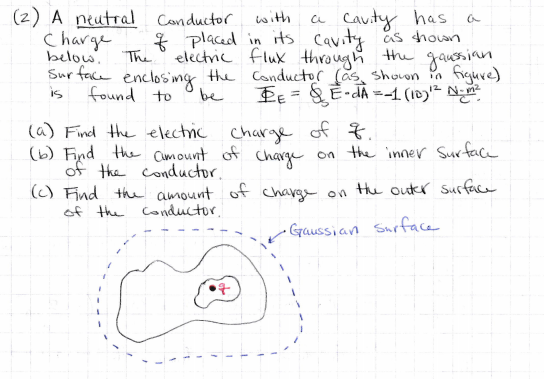 (2) A neutral conductor with a cavity has a
charge q placed in its cavity as shown
below. The electric flux through the gaussian
surface enclosing the conductor (as shown in figure)
is found to be Φ_E = ∮_S E⃗·dA⃗ = -1 (10)^12 N·m²/C.
(a) Find the electric charge of q.
(b) Find the amount of charge on the inner surface
of the conductor.
(c) Find the amount of charge on the outer surface
of the conductor.
Gaussian surface
q